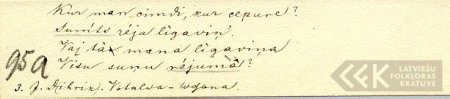 Kur man cimdi, kur cepure?
Sunīts rēja līgaviņ.
Vaj tāa mana līgaviņa
Visu suņu rējumā?
959
3. J. Dihriķ. Votalva - Ogona.
LATVIEŠU
FOLKLORAS
KRĀTUVE